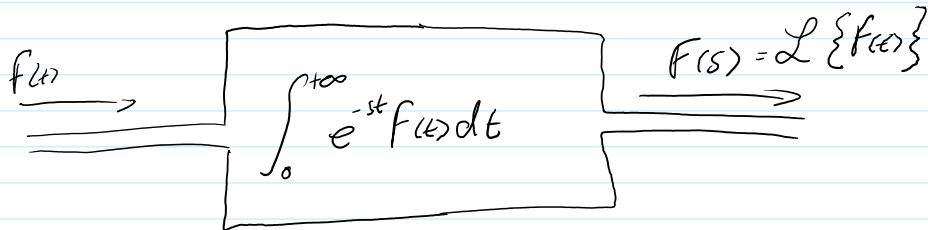 f(t)
∫₀^{+∞} e^{-st} f(t) dt
F(s) = ℒ {f(t)}